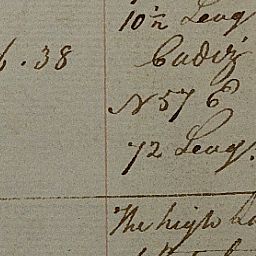 10½ Leag
Cadiz
. 38
N 57 E
72 Leag.
The high La